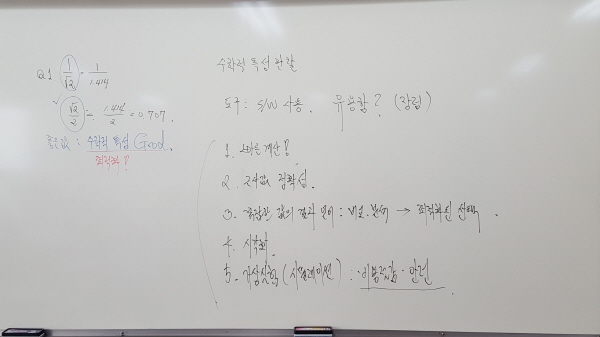 Q1 1/√2 = 1/1.414
√2/2 = 1.414/2 = 0.707.
좋은값 : 수학적 특성 Good.
최적화?
수학적 특성 관찰
도구 : S/W 사용. 유용함? (장점)
1. 빠른 계산!
2. 정확성.
3. 다양한 값의 결과 분석 : 비교.분석 → 최적화된 선택.
4. 시각화
5. 가상실험 (시뮬레이션) : ·비용절감·안전